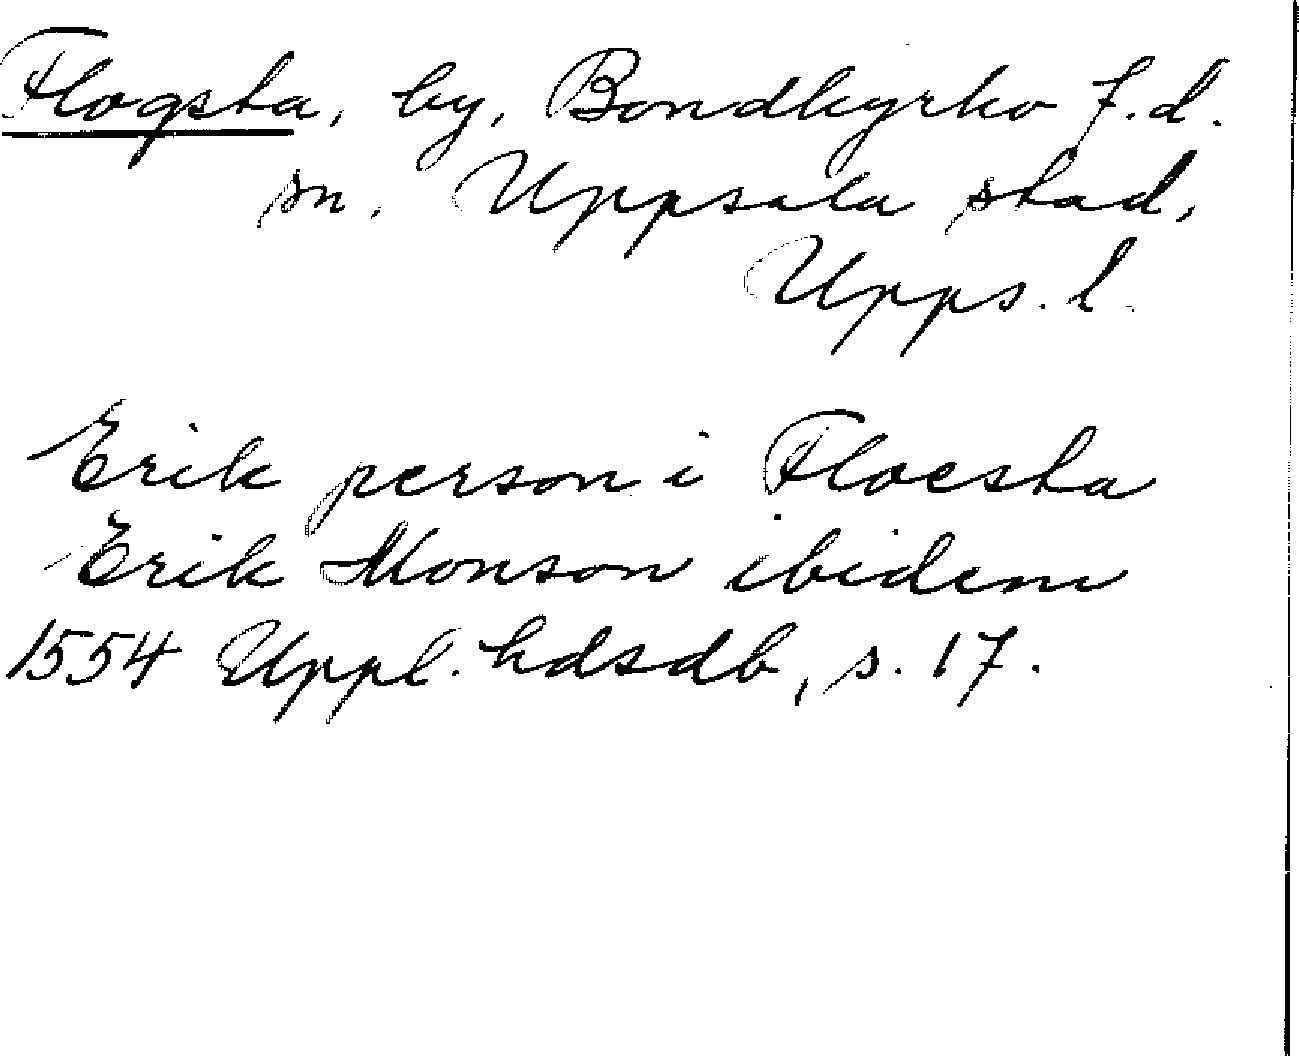 Flogsta, by, Bondkyrko f.d.
sn. Uppsala stad,
Upps. l.
Erik person i Floesta
Erik Monson ibidem
1554 Uppl. hdsdb, s. 17.